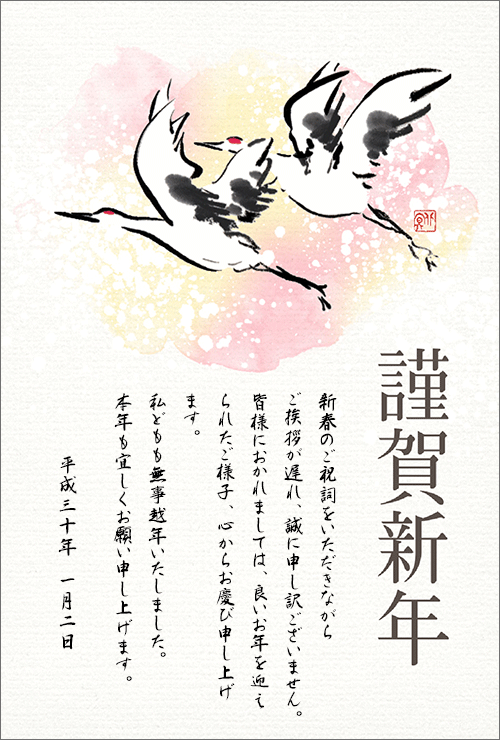 謹賀新年
新春のご祝詞をいただきながら
ご挨拶が遅れ、誠に申し訳ございません。
皆様におかれましては、良いお年を迎え
られたご様子、心からお慶び申し上げ
ます。
私どもも無事越年いたしました。
本年も宜しくお願い申し上げます。
平成三十年 一月二日